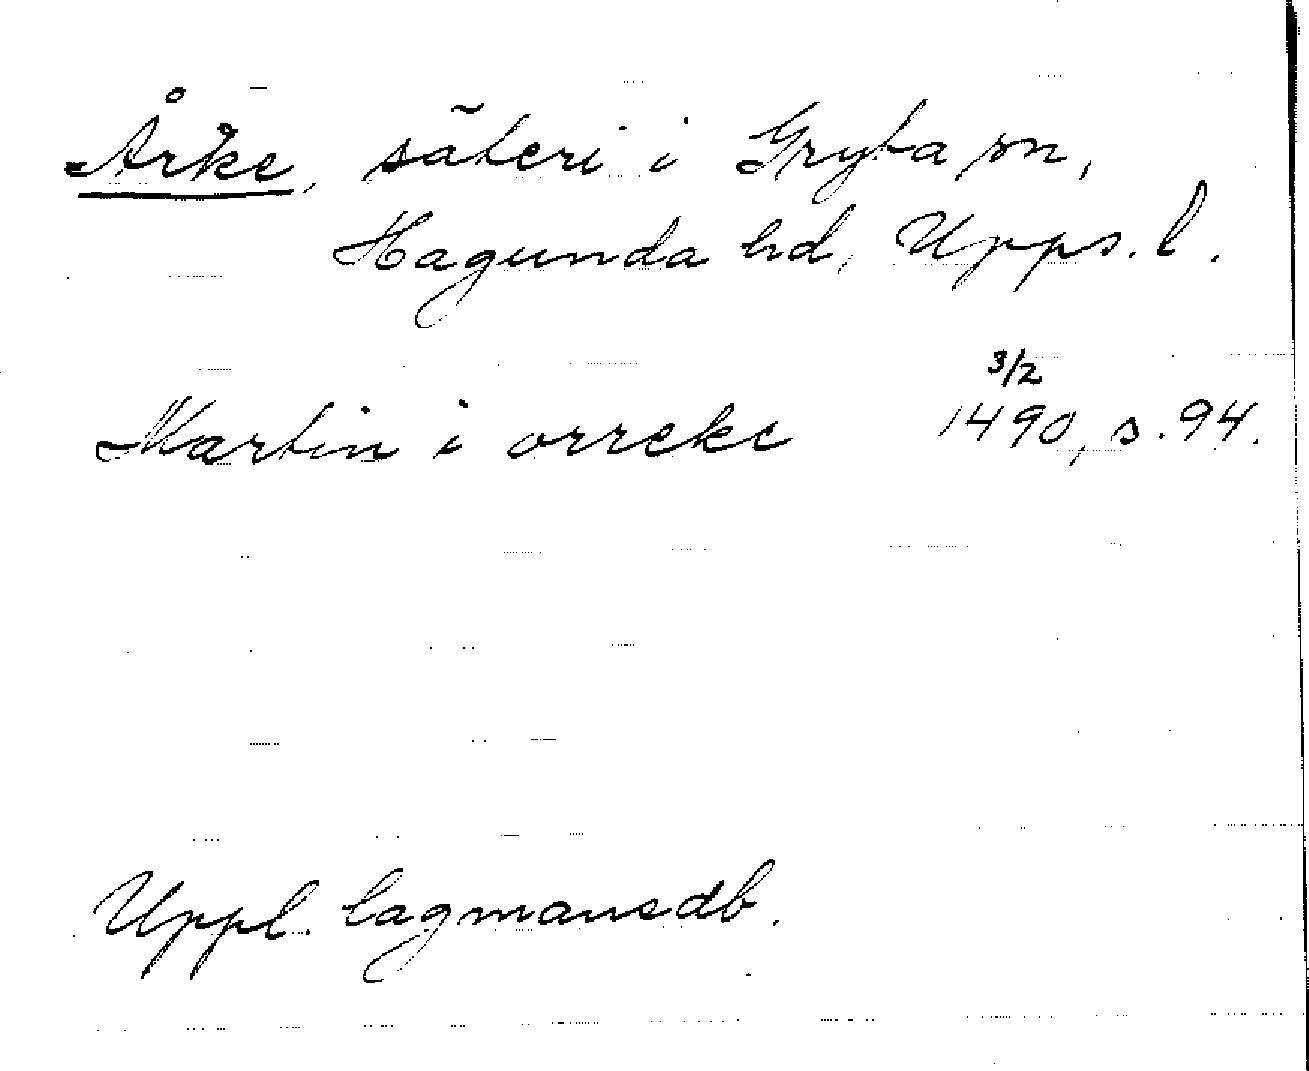 Årke, säteri i Gryta sn,
Hagunda hd, Upps. l.
3/2
Martin i orreke 1490, s. 94.
Uppl. lagmansdb.